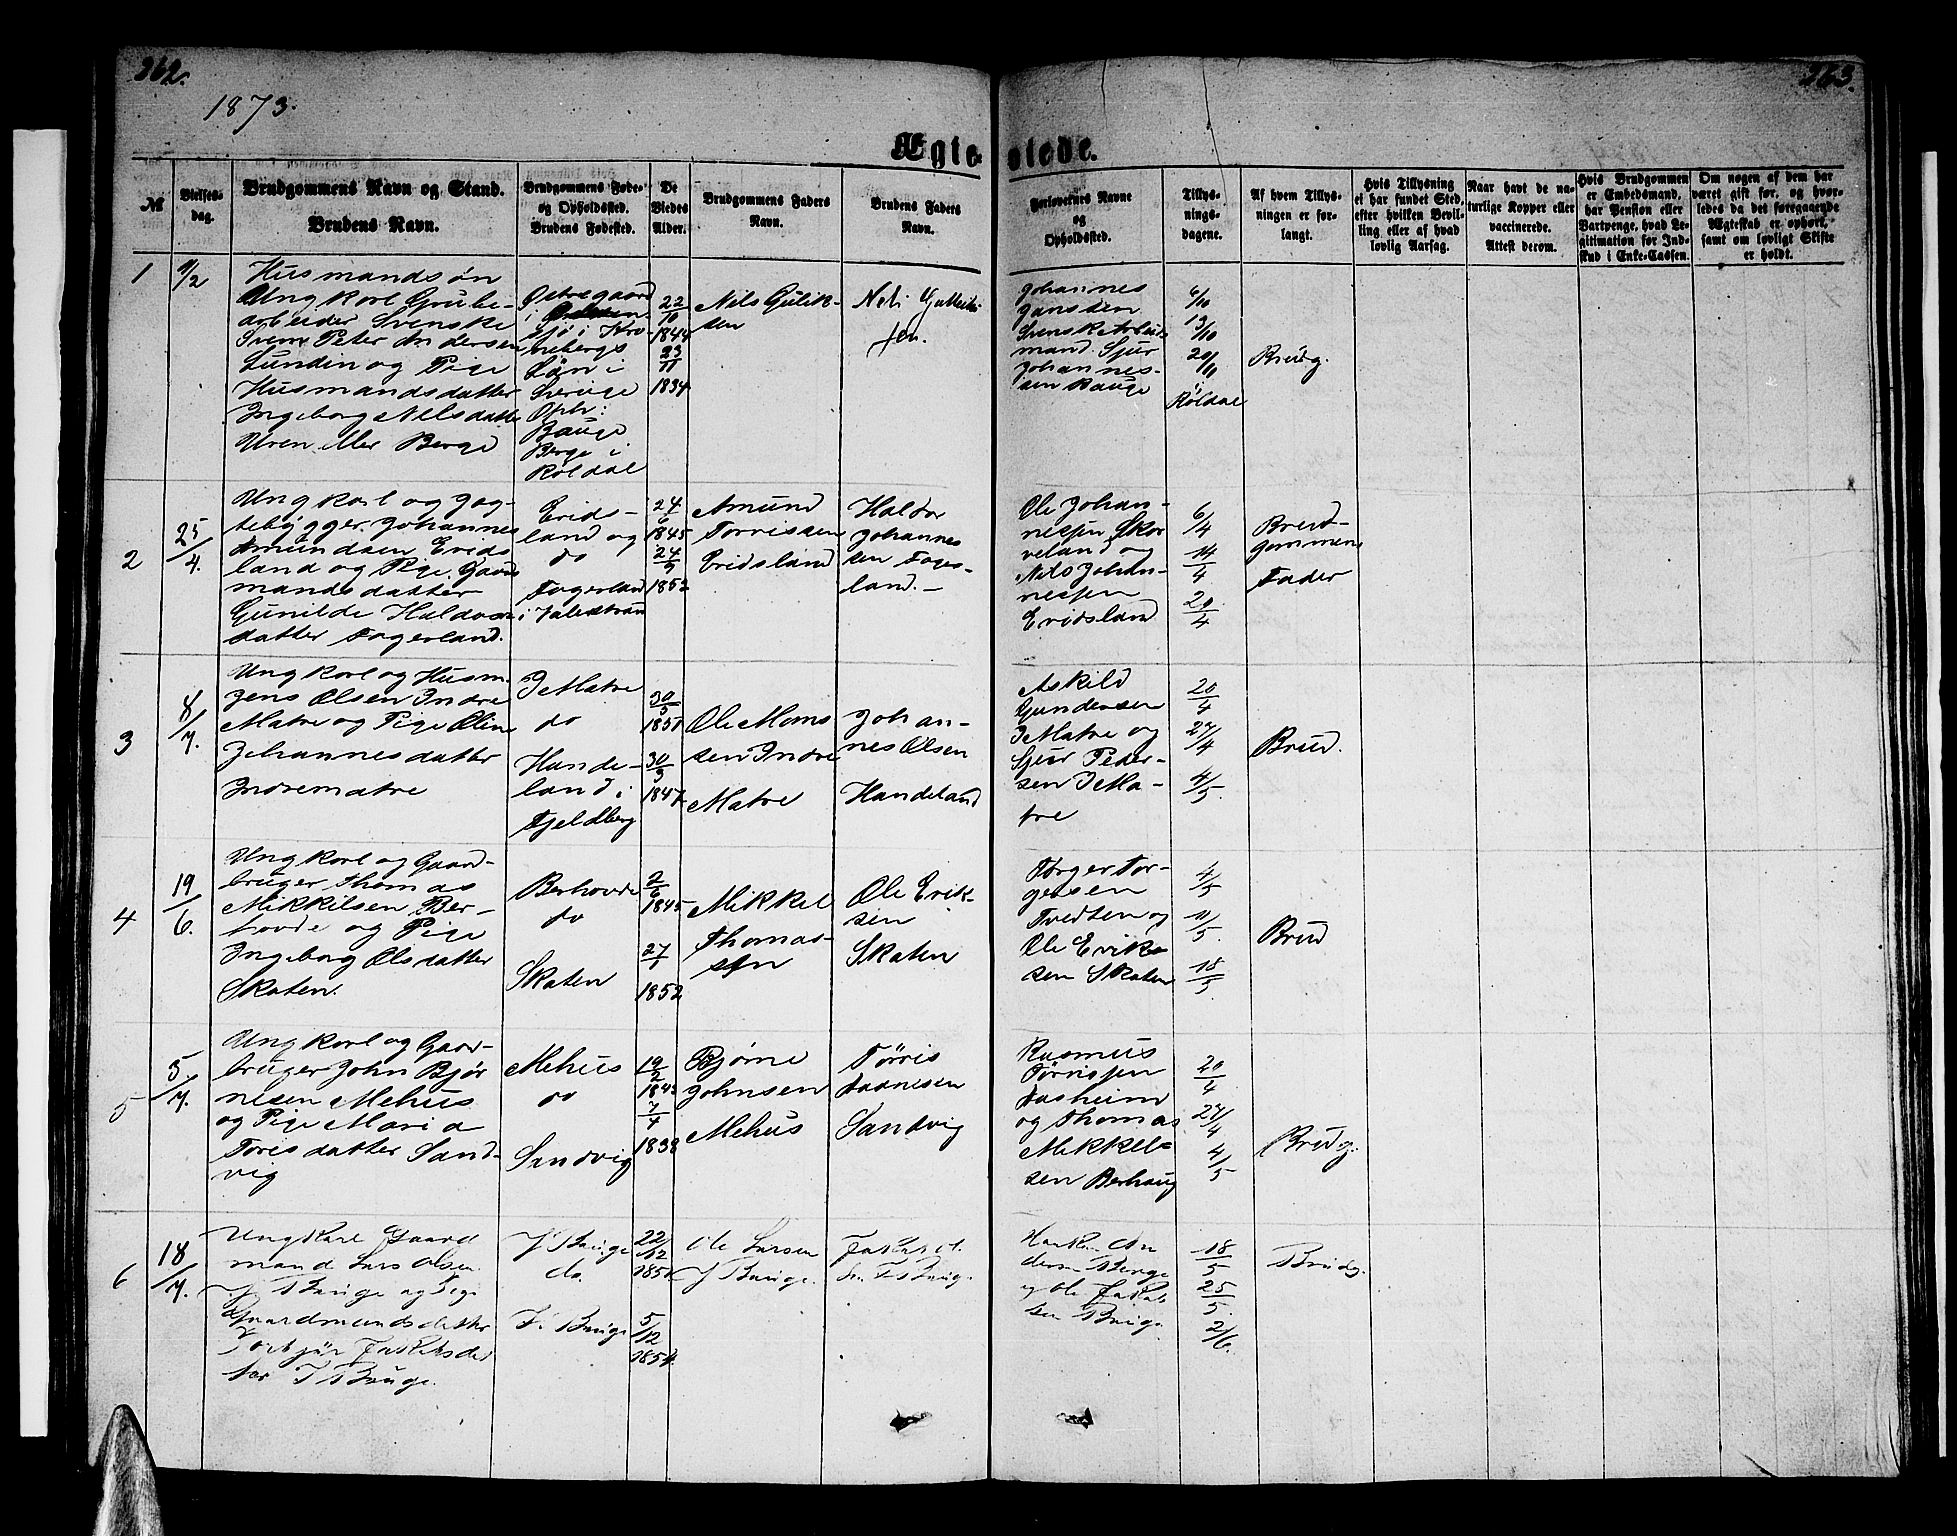 362.
363.
1873.
Ægteviede.
№
Vielses-
dag.
Brudgommens Navn og Stand.
Brudens Navn.
Brudgommens Føde-
og Opholdssted.
Brudens Fødested.
De
Viedes
Alder.
Brudgommens Faders
Navn.
Brudens Faders
Navn.
Forlovernes Navne
og
Opholdssted.
Tillys-
nings-
dagene.
Af hvem Tillys-
ningen er for-
langt.
Hvis Tillysning
ei har fundet Sted,
efter hvilken Bevil-
ling eller af hvad
lovlig Aarsag.
Naar havt de na-
turlige Kopper eller
vaccinerede.
Attest derom.
Hvis Brudgommen
er Embedsmand,
har Pension eller
Vartpenge, hvad Le-
gitimation for Ind-
skud i Enke-Cassen.
Om nogen af dem har
været gift før, og hvor-
ledes da det foregaaende
Ægteskab er ophørt,
samt om lovligt Skifte
er holdt.
1
Husmandsøn
Ungkarl Grube-
arbeider Svenske
Peter Andersen
Lundin og Pige
Husmandsdatter
Ingeborg Nilsdatter
Uren eller Berge
i
sjø i Kro-
nebergs
Län i
Sverige
Oph:
Bauge
Berge i
Røldal
22/10
1844
23/11
1834
Nils Gulik-
sen
Johannes
Svensk Arbeids
mand. Sjur
Johannes-
sen Bauge
6/10
13/10
20/10
Røldal
Brudg.
2
25/4.
Ungkarl og Jag-
tebygger Johannes
Amundsen Erids
land og Pige Gaard
mandsdatter
Gunilde Haldors
datter Fagerland.
Erids-
land og
do
Fagerland
24/6
1845
24/9
1852
Amund
Torrissen
Eridsland
Haldor
Johannes
sen Fager-
land.-
Ole Johan-
nesen Skor
veland og
Nils Johan-
nesen
Eridsland
6/4
14/4
20/4
Brud-
gommens
Fader
3
8/7.
Ungkarl og Husm.
Jens Olsen Indre
Matre og Pige Oline
Johannesdatter
Indrematre
I Matre
do
Hande-
land i
Fjeldberg
30/5
1851
30/9
1847
Ole Mons
sen Indre
Matre
Johan-
nes Olsen
Handeland
Askild
Gundersen
I Matre og
Sjur Peder-
sen I Ma-
tre
20/4
27/4
4/5.
Brud.
4
19/6.
Ungkarl og Gaard-
bruger Thomas
Mikkelsen Ber-
hovde og Pige
Ingeborg Olsdatter
Skaten.
Berhovde
do
Skaten
2/6
1845
27/1
1852
Mikkel
Thomas-
sen
Ole Erik-
sen
Skaten
Tørger Tor-
gersen
Tvedten og
Ole Erik-
sen Skaten
4/5
11/5
18/5.
Brud
5
5/7.
Ungkarl og Gaar-
bruger John Bjør
nesen Mehus
og Pige Maria
Torisdatter Sand-
vig
Mehus
do
Sandvig
19/2
1843
7/4
1838
Bjørne
Johnsen
Mehus
Tørris
Aadnesen
Sandvig
Rasmus
Tørrisen
Aasheim
og Thomas
Mikkel-
sen Berhaug
20/4
27/4
4/5
Brudg.
6
18/7.
Ungkarl Gaard
mand Lars Olsen
J Bauge og Pige
Gaardmandsdatter
J. Bauge
J Bauge
do.
J. Bauge
22/12
1851
5/12
1854
Ole Larsen
J Bauge.
18/5
25/5.
2/6.
Brudg.